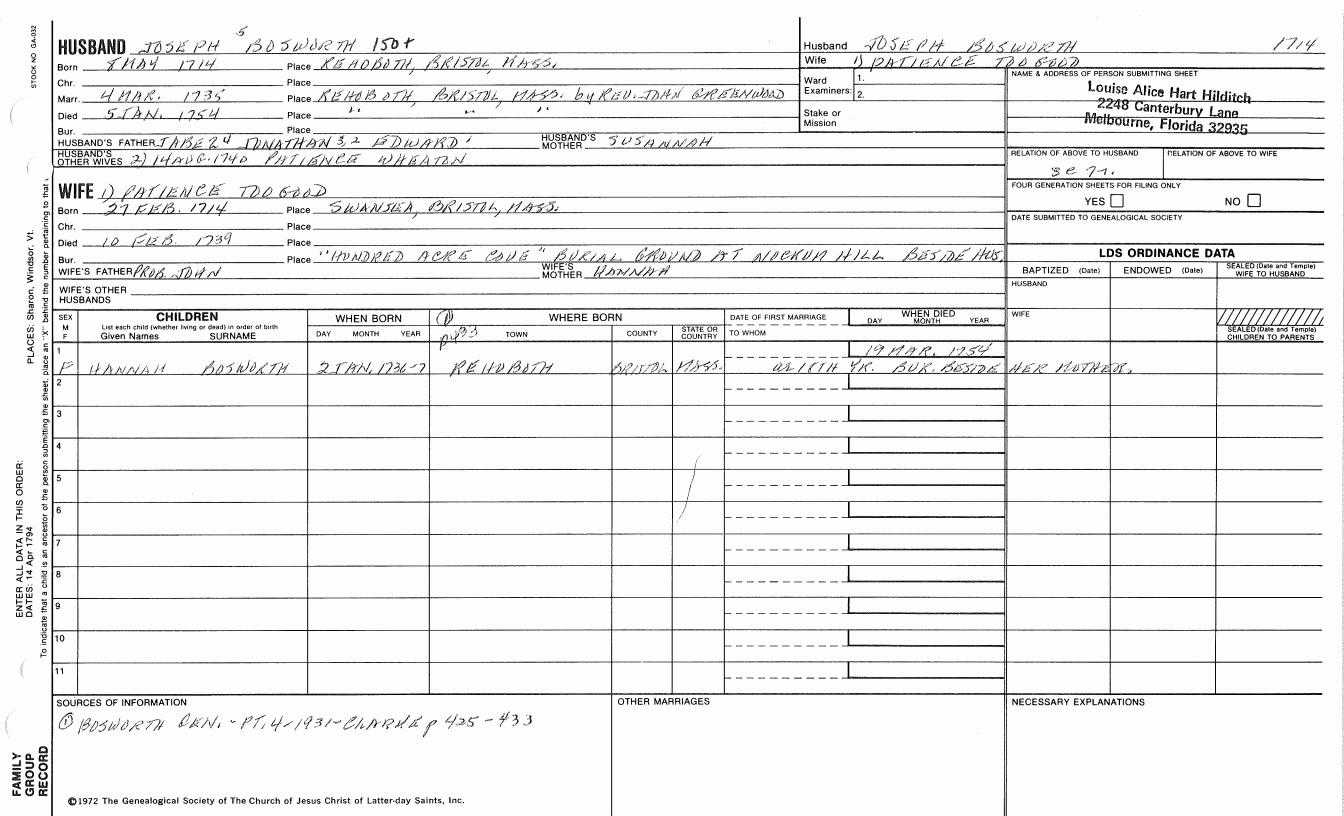 STOCK NO GA-032
HUSBAND JOSEPH 5 BOSWORTH 150+
Born 8 MAY 1714 Place REHOBOTH, BRISTOL, MASS.
Chr. Place
Marr. 4 MAR. 1735 Place REHOBOTH, BRISTOL, MASS. by REV. JOHN GREENWOOD
Died 5 JAN. 1754 Place " " "
Bur. Place
HUSBAND'S FATHER JABEZ 4 JONATHAN 3,2 EDWARD 1 HUSBAND'S MOTHER SUSANNAH
HUSBAND'S OTHER WIVES 2) 14 AUG. 1740 PATIENCE WHEATON
Husband JOSEPH BOSWORTH 1714
Wife 1) PATIENCE TOOGOOD
Ward Examiners: 1.
2.
Stake or Mission
NAME & ADDRESS OF PERSON SUBMITTING SHEET
Louise Alice Hart Hilditch
2248 Canterbury Lane
Melbourne, Florida 32935
RELATION OF ABOVE TO HUSBAND RELATION OF ABOVE TO WIFE
FOUR GENERATION SHEETS FOR FILING ONLY
YES NO
DATE SUBMITTED TO GENEALOGICAL SOCIETY
WIFE 1) PATIENCE TOOGOOD
Born 27 FEB. 1714 Place SWANSEA, BRISTOL, MASS.
Chr. Place
Died 10 FEB. 1739 Place
Bur. Place "HUNDRED ACRE COVE" BURIAL GROUND AT NOCKUM HILL BESIDE HUS.
WIFE'S FATHER PROB. JOHN WIFE'S MOTHER HANNAH
WIFE'S OTHER HUSBANDS
LDS ORDINANCE DATA
BAPTIZED (Date) ENDOWED (Date) SEALED (Date and Temple) WIFE TO HUSBAND
HUSBAND
WIFE
SEALED (Date and Temple) CHILDREN TO PARENTS
SEX M F
CHILDREN
List each child (whether living or dead) in order of birth
Given Names SURNAME
WHEN BORN
DAY MONTH YEAR
(1) p 433
WHERE BORN
TOWN COUNTY STATE OR COUNTRY
DATE OF FIRST MARRIAGE
TO WHOM
WHEN DIED
DAY MONTH YEAR
1 19 MAR. 1754
F HANNAH BOSWORTH 2 JAN. 1736-7 REHOBOTH BRISTOL MASS. YR. BUR. BESIDE HER MOTHER.
2
3
4
5
6
7
8
9
10
11
SOURCES OF INFORMATION
(1) BOSWORTH GEN. - PT. 4 - 1931 - CLARKE p 425 - 433
OTHER MARRIAGES
NECESSARY EXPLANATIONS
©1972 The Genealogical Society of The Church of Jesus Christ of Latter-day Saints, Inc.
PLACES: Sharon, Windsor, Vt.
To indicate that a child is an ancestor of the person submitting the sheet, place an "X" behind the number pertaining to that
ENTER ALL DATA IN THIS ORDER:
DATES: 14 Apr 1794
FAMILY
GROUP
RECORD